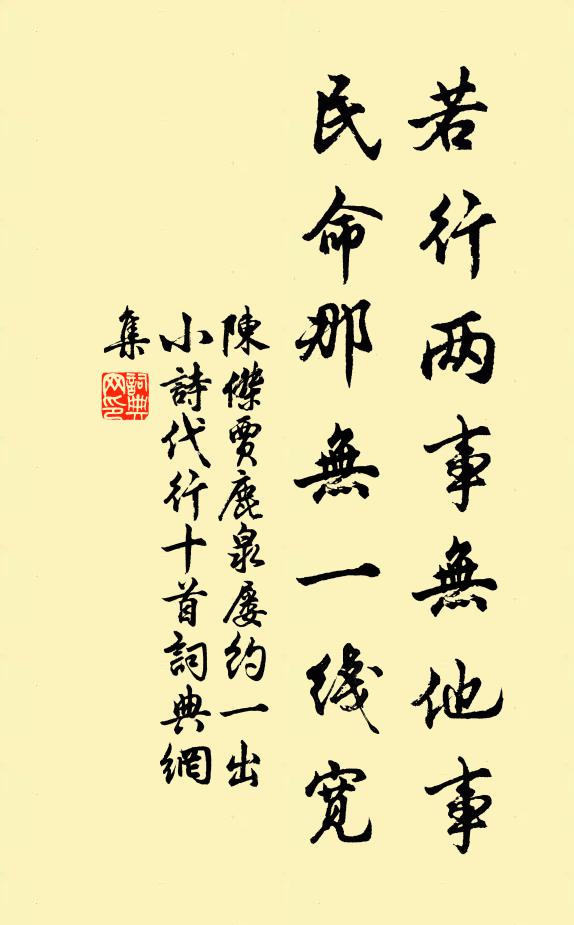 若行两事無他事
民命那無一线寬
陳傑賈鹿泉屡約一出
小詩代行十首詞典網
集
詞典
网印